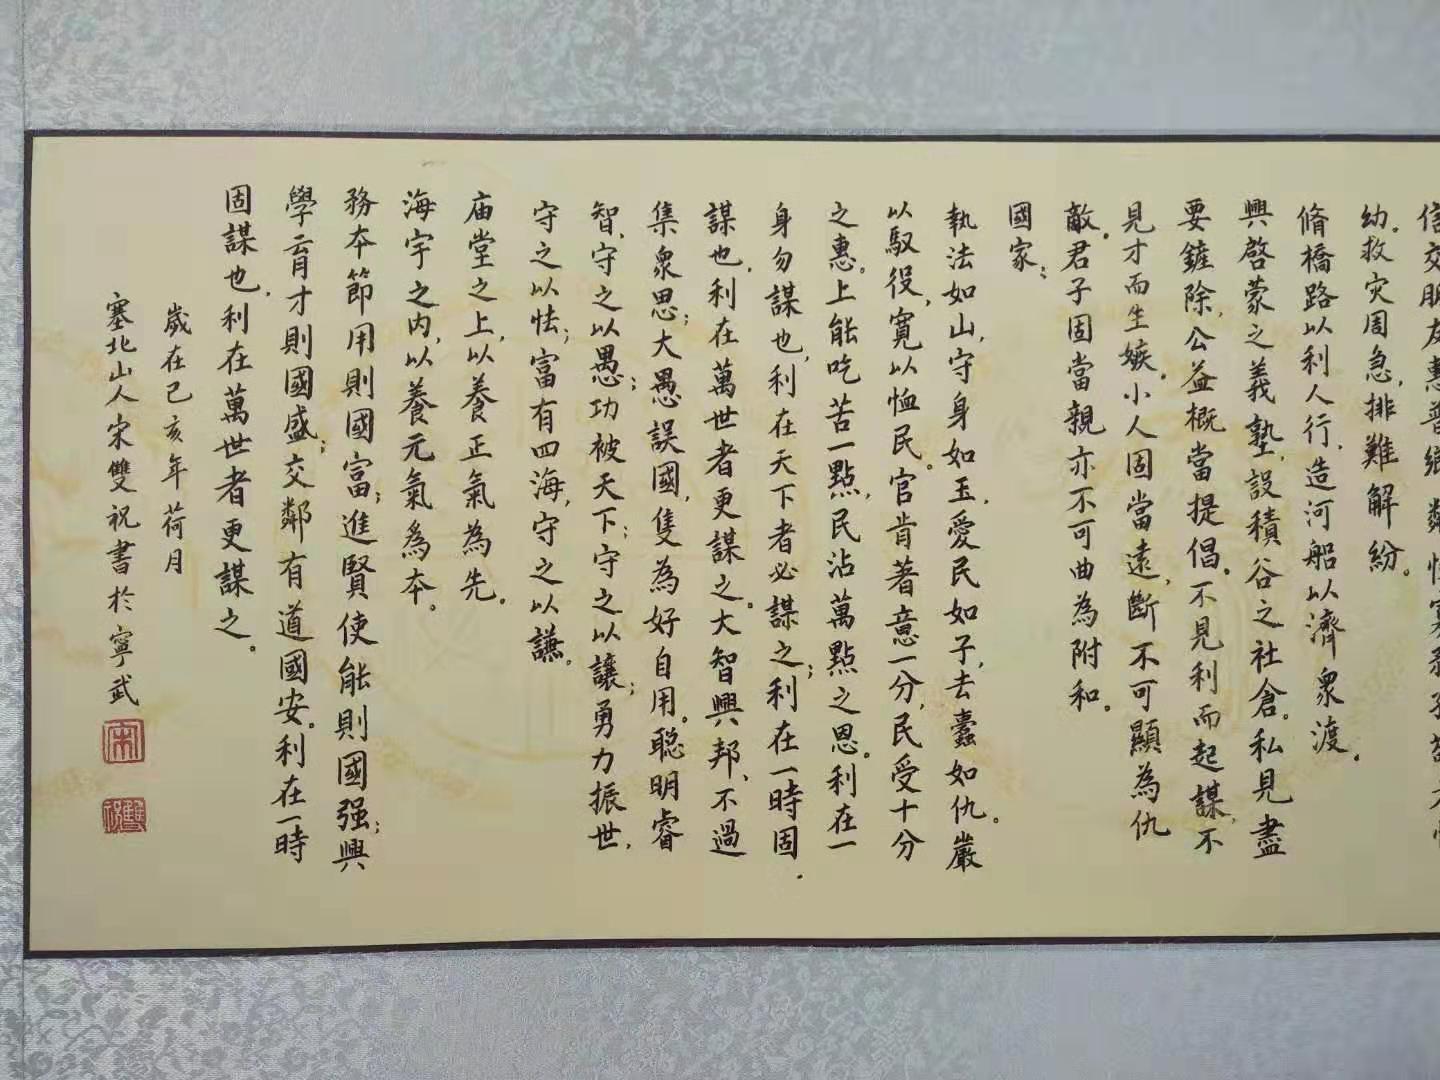 信交朋友惠普鄉鄰恤寡
幼。救灾周急,排難解紛。
脩橋路以利人行,造河船以濟衆渡。
興啓蒙之義塾,設積谷之社倉。私見盡
要鏟除,公益概當提倡。不見利而起謀,不
見才而生嫉。小人固當遠,斷不可顯為仇
敵。君子固當親亦不可曲為附和。
國家:
執法如山,守身如玉,愛民如子,去蠹如仇。嚴
以馭役,寬以恤民。官肯著意一分,民受十分
之惠。上能吃苦一點,民沾萬點之恩。利在一
身勿謀也,利在天下者必謀之;利在一時固
謀也,利在萬世者更謀之。大智興邦,不過
集衆思;大愚誤國,隻為好自用。聪明睿
智,守之以愚;功被天下;守之以讓;勇力振世,
守之以怯;富有四海,守之以謙。
庙堂之上,以養正氣為先。
海宇之内,以養元氣爲本。
務本節用則國富;進賢使能則國强;興
學育才則國盛;交鄰有道國安。利在一時
固謀也,利在萬世者更謀之。
歲在己亥年荷月
塞北山人宋雙祝書於寧武
宋
雙祝